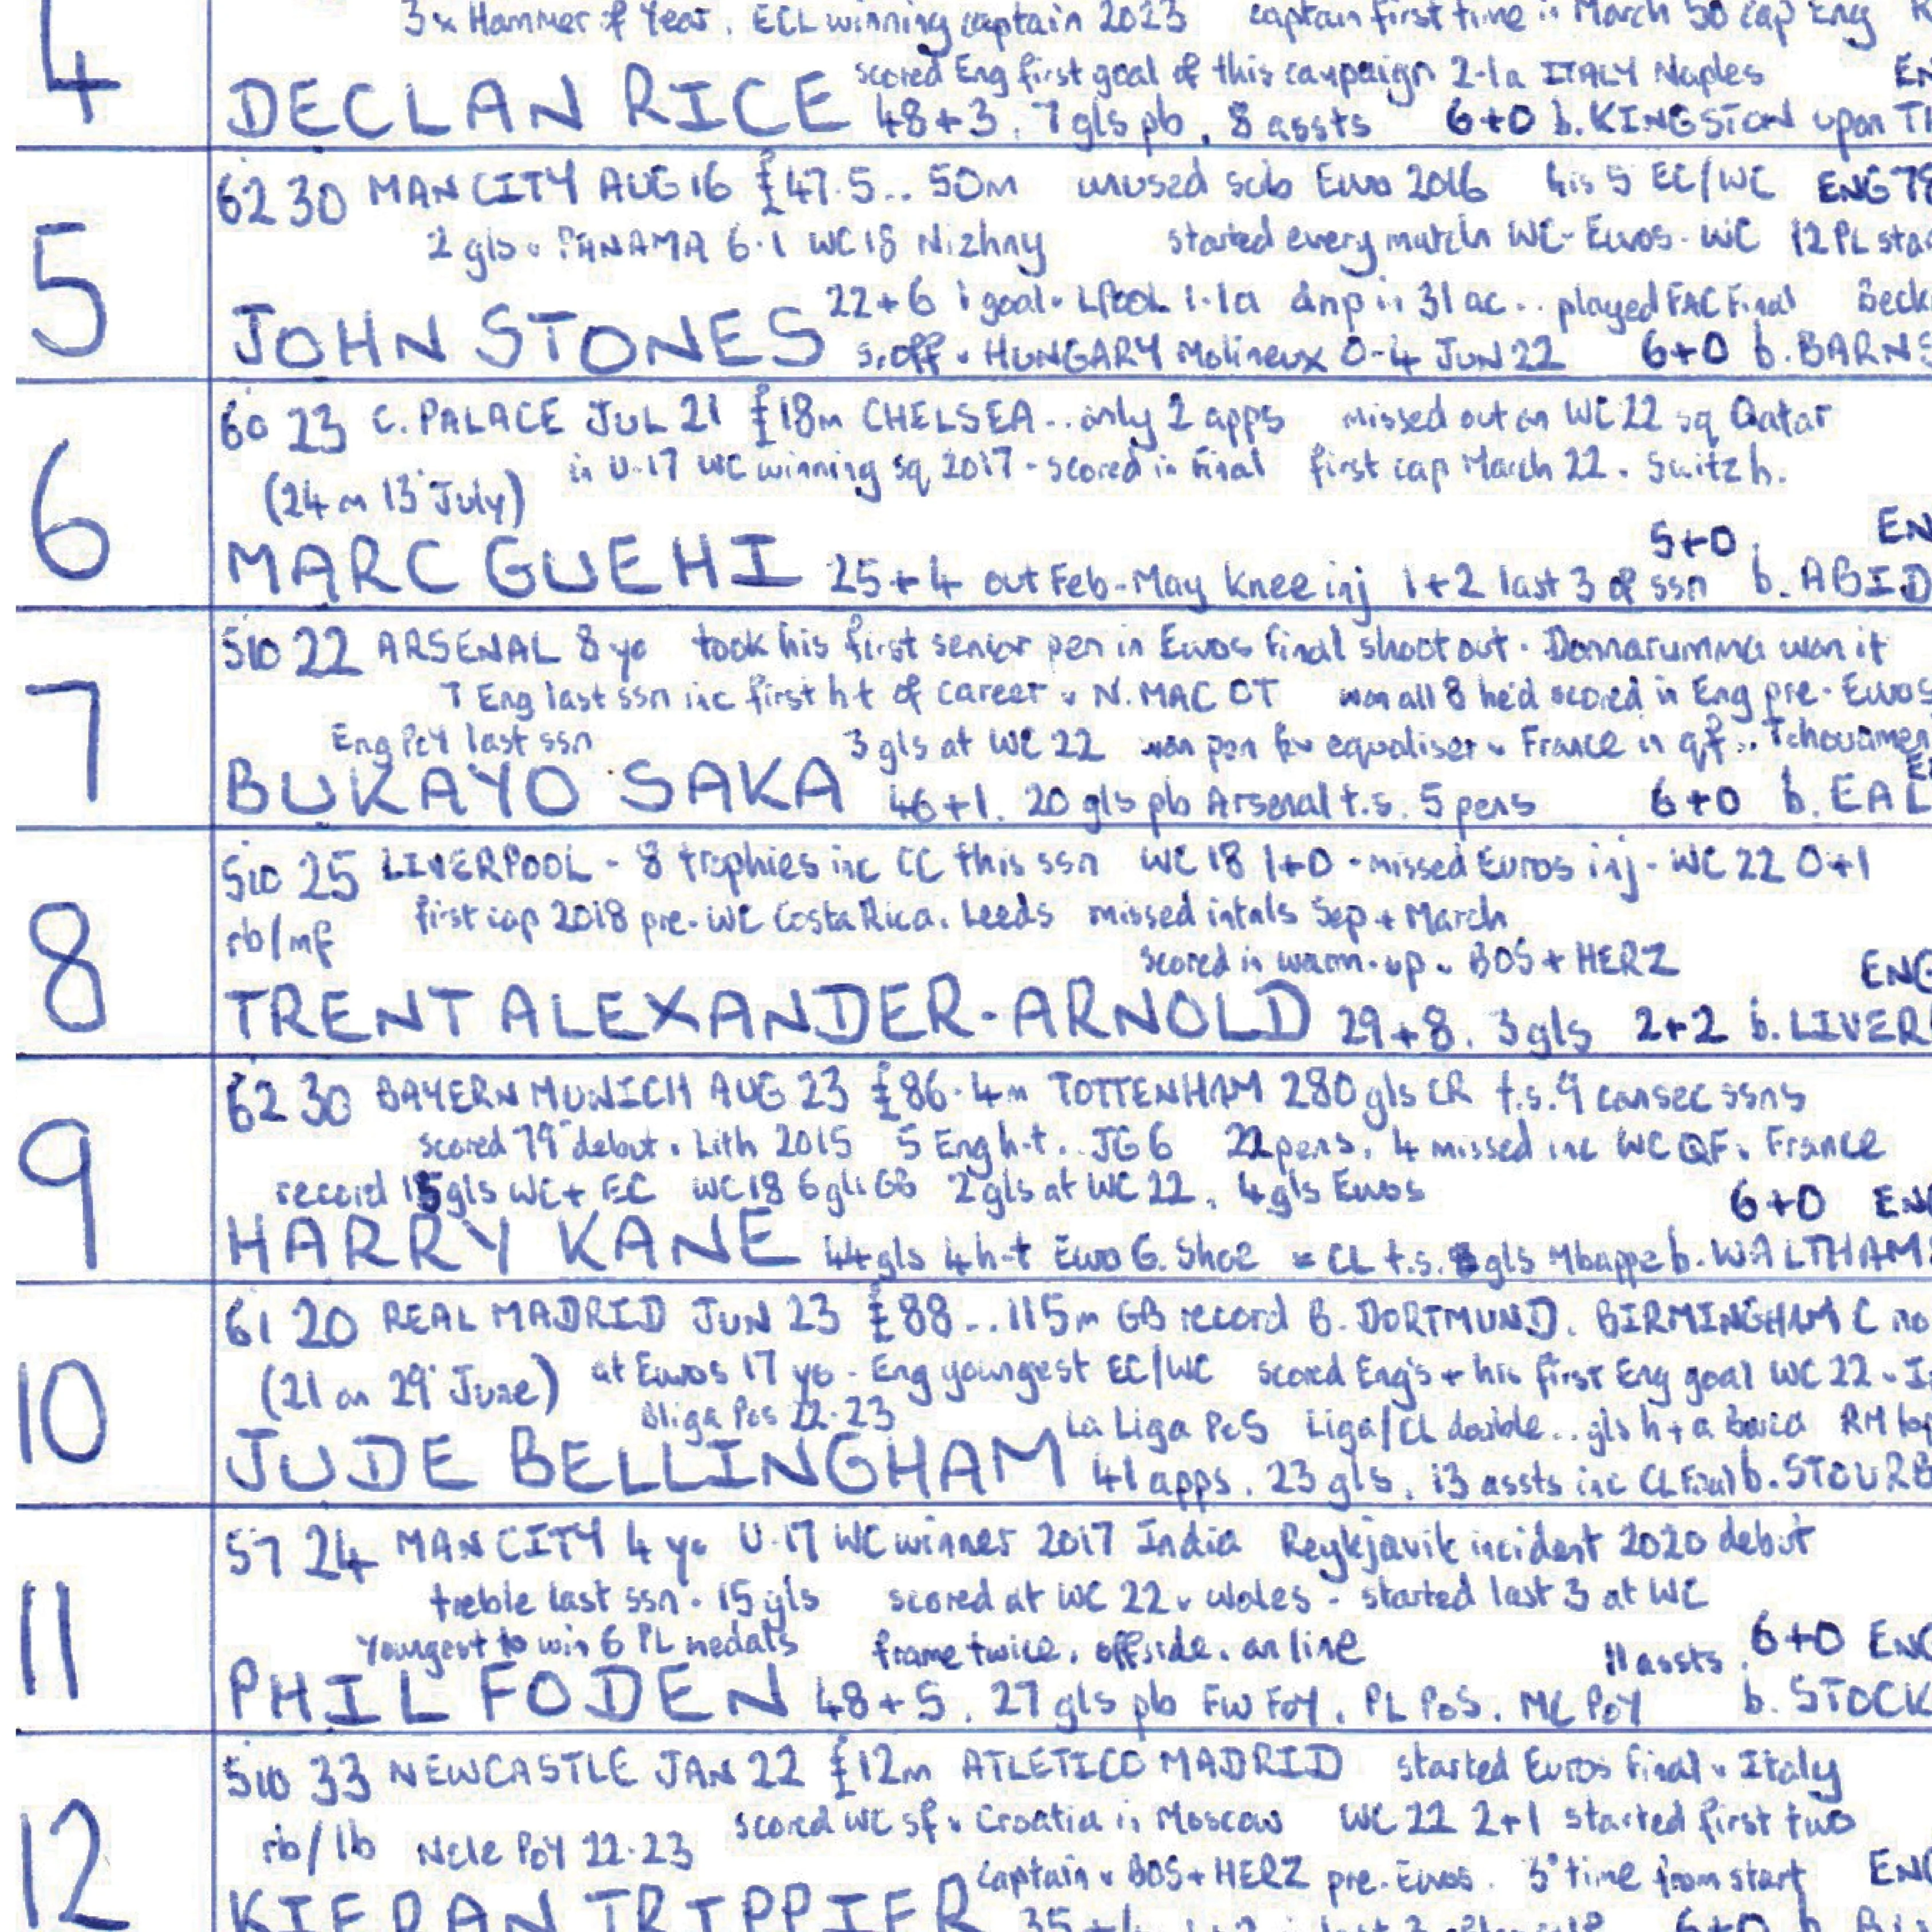 4
3x Hammer of Year. ECL winning captain 2023 captain first time in March 50 cap Eng
scored Eng first goal of this campaign 2-1 a ITALY Naples
DECLAN RICE 48+3. 7 gls pb. 8 assts 6+0 b. KINGSTON upon
5
62 30 MAN CITY AUG 16 £47.5.. 50m unused sub Euro 2016 his 5 EC/WC ENG
2 gls v PANAMA 6-1 WC18 Nizhny started every match WC-Euros-WC 12 PL
22+6 1 goal v LPOOL 1-1 a dnp in 31 ac.. played FAC Final
JOHN STONES s.off v HUNGARY Molineux 0-4 JUN 22 6+0 b. BARNS
6
60 23 C. PALACE JUL 21 £18m CHELSEA.. only 2 apps missed out on WC22 sq Qatar
in U-17 WC winning sq 2017 - scored in final first cap March 22. Switz h.
(24 on 13 July)
5+0 EN
MARC GUEHI 25+4 out Feb-May knee inj 1+2 last 3 of ssn b. ABID
7
510 22 ARSENAL 8 yo took his first senior pen in Euros final shoot out. Donnarumma won it
7 Eng last ssn inc first h-t of career v N. MAC OT won all 8 he'd scored in Eng pre-Euros
Eng PoY last ssn 3 gls at WC 22 won pen for equaliser v France in qf..
BUKAYO SAKA 46+1. 20 gls pb Arsenal t.s. 5 pens 6+0 b. EAL
8
510 25 LIVERPOOL - 8 trophies inc CC this ssn WC 18 1+0 - missed Euros inj - WC 22 0+1
rb/mf first cap 2018 pre-WC Costa Rica. Leeds missed intnls Sep + March
scored in warm-up v BOS + HERZ ENG
TRENT ALEXANDER-ARNOLD 29+8. 3 gls 2+2 b. LIVER
9
62 30 BAYERN MUNICH AUG 23 £86.4m TOTTENHAM 280 gls CR t.s. 9 consec ssns
scored 79" debut v Lith 2015 5 Eng h-t.. JG 6 22 pens. 4 missed inc WC QF v France
record 15 gls WC + EC WC18 6 gls GB 2 gls at WC 22. 4 gls Euros
6+0 ENG
HARRY KANE 44 gls 4 h-t Euro G. Shoe = CL t.s. 8 gls Mbappe b. WALTHAM
10
61 20 REAL MADRID JUN 23 £88...115m GB record B. DORTMUND. BIRMINGHAM C no
(21 on 29 June) at Euros 17 yo - Eng youngest EC/WC scored Eng's + his first Eng goal WC 22 v
Bliga PoS 22-23 La Liga PoS Liga/CL double.. gls h+a Barca RM
JUDE BELLINGHAM 41 apps. 23 gls. 13 assts inc CL Final b. STOURB
11
57 24 MAN CITY 4 yo U-17 WC winner 2017 India Reykjavik incident 2020 debut
treble last ssn - 15 gls scored at WC 22 v Wales - started last 3 at WC
Youngest to win 6 PL medals frame twice. offside. on line 11 assts. 6+0 ENG
PHIL FODEN 48+5. 27 gls pb FW FOY. PL PoS. MC PoY b. STOCK
12
510 33 NEWCASTLE JAN 22 £12m ATLETICO MADRID started Euros final v Italy
rb/lb Ncle PoY 22-23 scored WC sf v Croatia in Moscow WC 22 2+1 started first two
captain v BOS + HERZ pre-Euros. 3° time from start ENG
KIERAN TRIPPIER 35+4 6+0